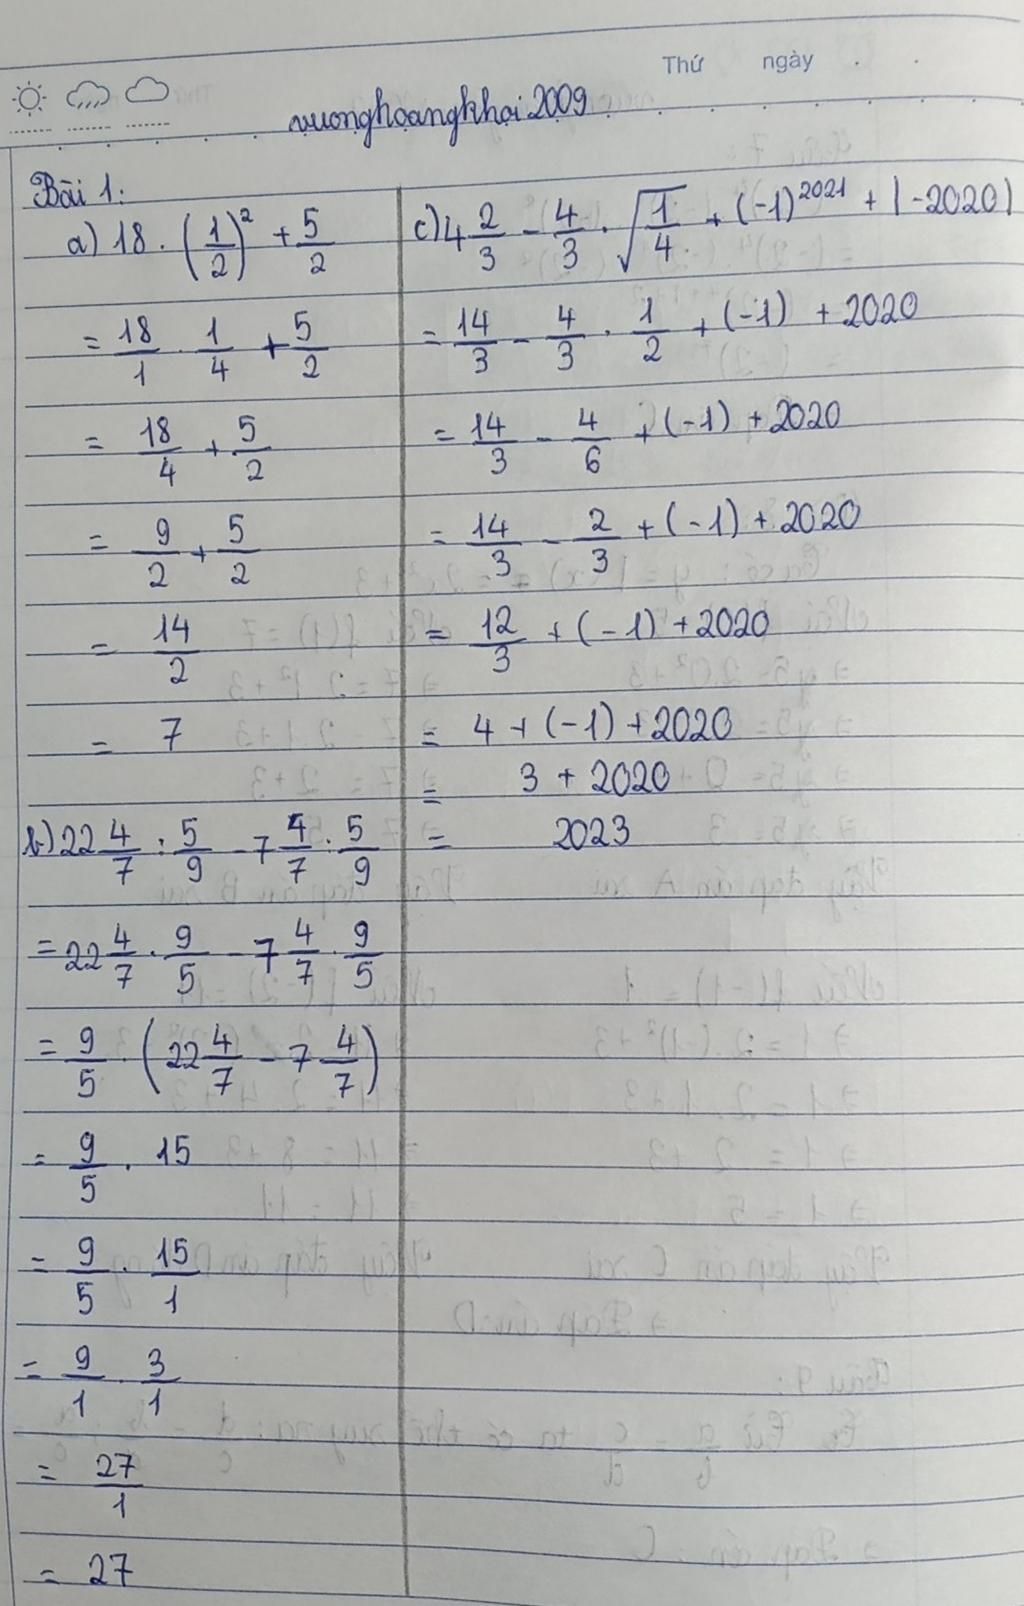 Thứ ngày
vuonghoangkhai2009
Bài 1:
a) 18 . (1/2)² + 5/2
= 18/1 . 1/4 + 5/2
= 18/4 + 5/2
= 9/2 + 5/2
= 14/2
= 7
b) 22 4/7 : 5/9 - 7 4/7 : 5/9
= 22 4/7 . 9/5 - 7 4/7 . 9/5
= 9/5 . (22 4/7 - 7 4/7)
= 9/5 . 15
= 9/5 . 15/1
= 9/1 . 3/1
= 27/1
= 27
c) 4 2/3 - 4/3 . √(1/4) + (-1)²⁰²¹ + |-2020|
= 14/3 - 4/3 . 1/2 + (-1) + 2020
= 14/3 - 4/6 + (-1) + 2020
= 14/3 - 2/3 + (-1) + 2020
= 12/3 + (-1) + 2020
= 4 + (-1) + 2020
= 3 + 2020
= 2023